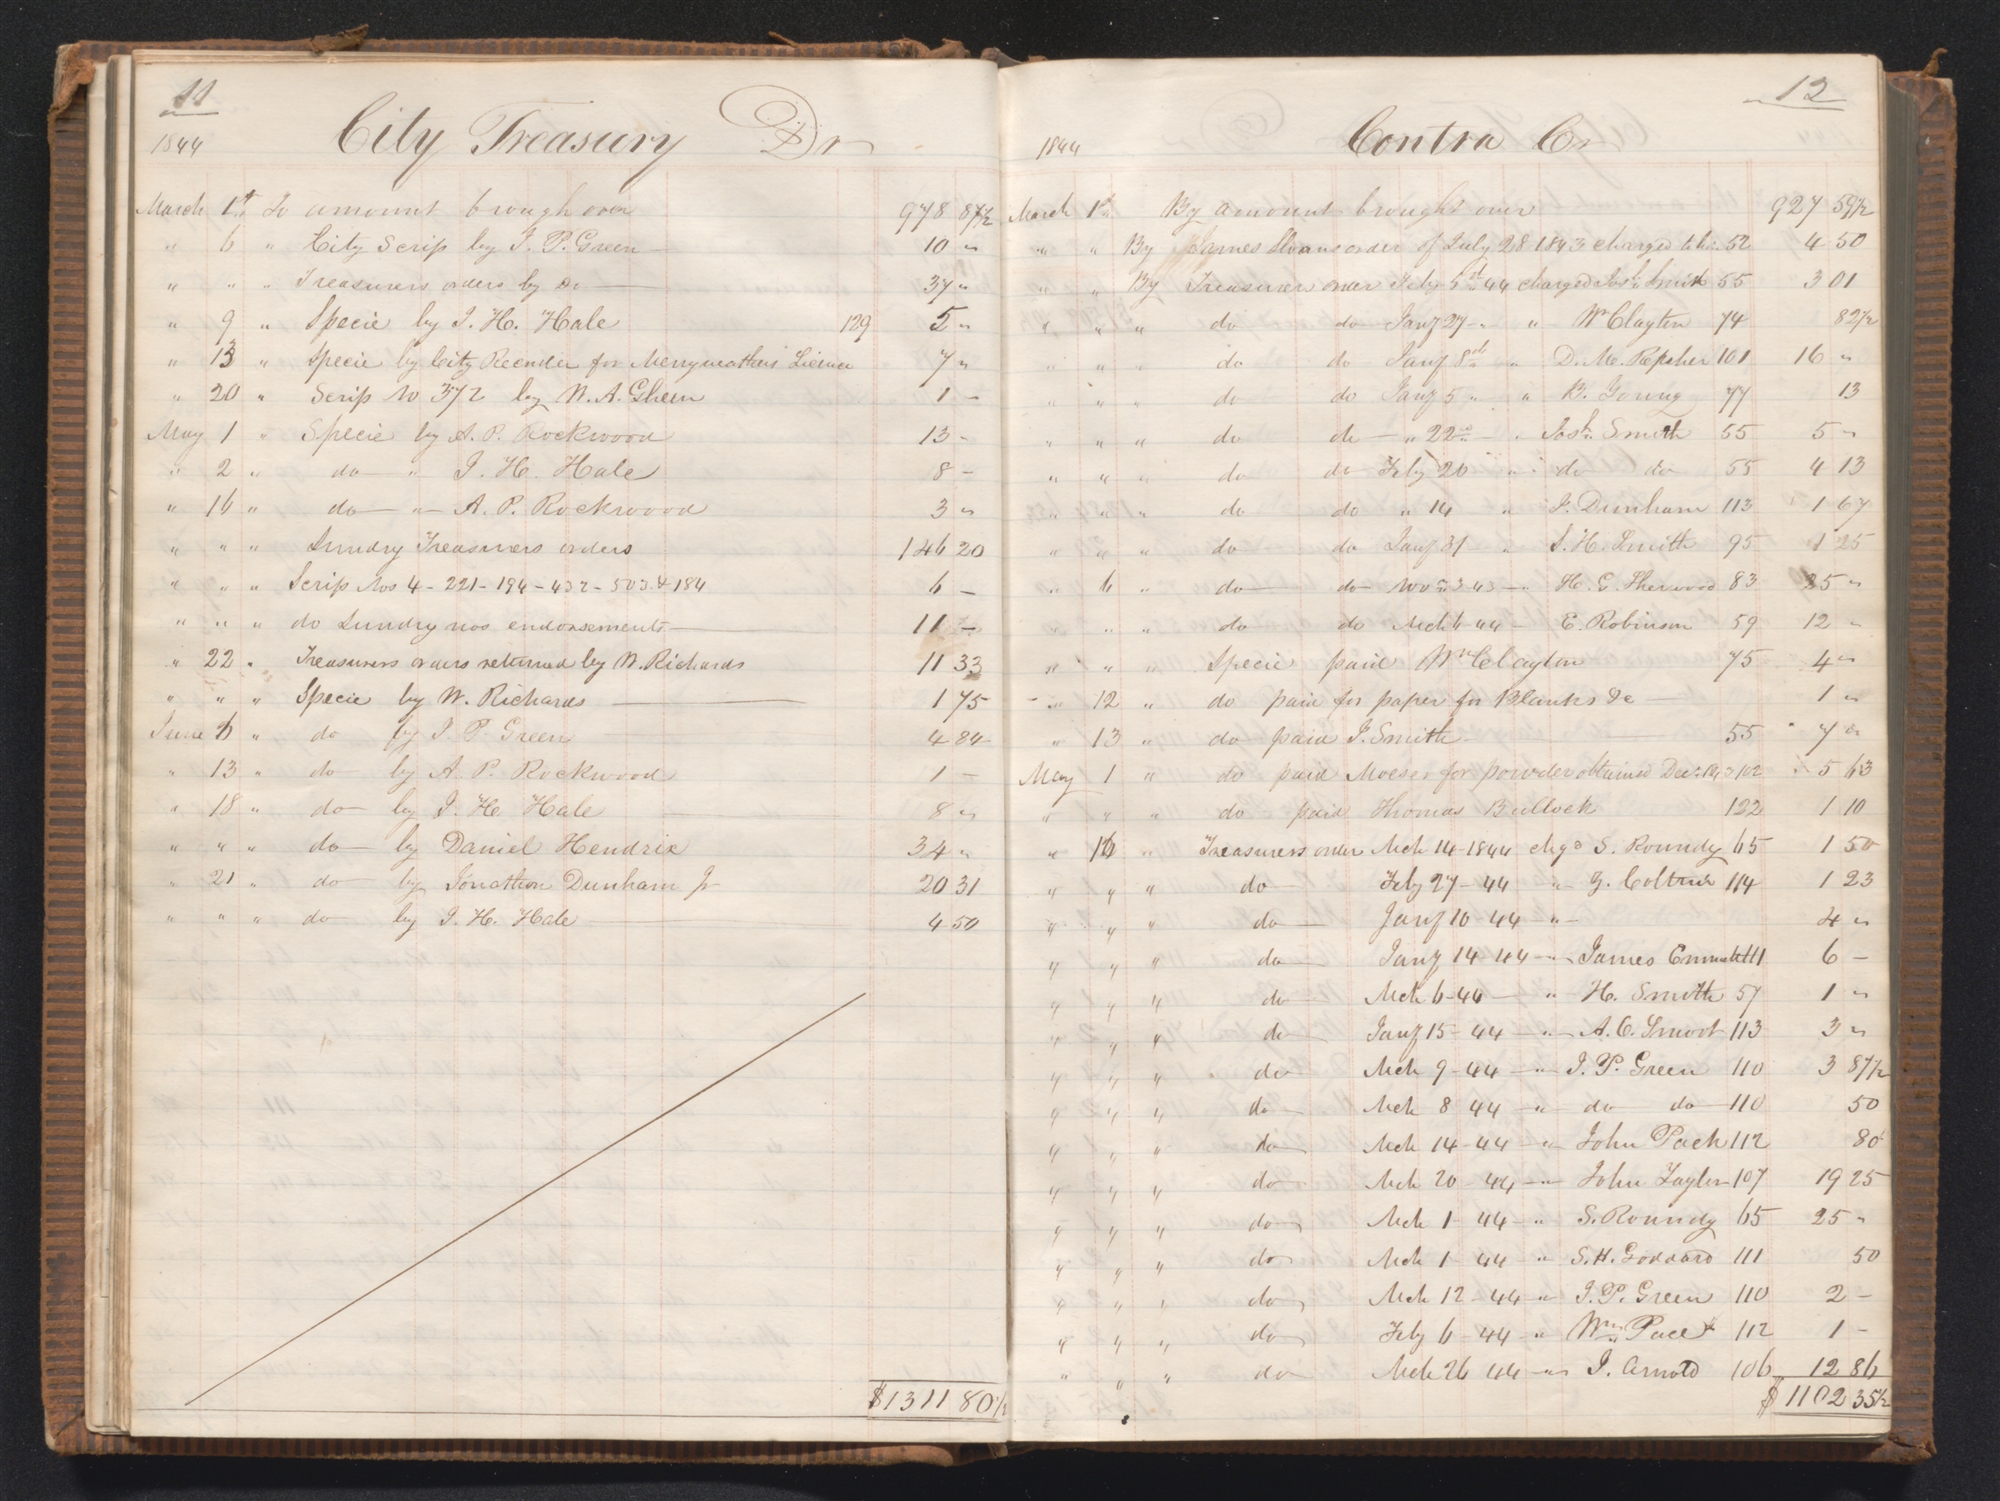 11
1844 City Treasury Dr
March 1st To amount brough over 978 87½
" 6 " City Scrip by J. P. Green 10 "
" " " Treasurers orders by Do 37 "
" 9 " Specie by J. H. Hale 129 5 "
" 13 " Specie by City Recorder for Merrymathers Licence 7 "
" 20 " Scrip No 372 by W. A. Gheen 1 –
May 1 " Specie by A. P. Rockwood 13 –
" 2 " do " J. H. Hale 8 –
" 16 " do " A. P. Rockwood 3 "
" " " Sundry Treasurers orders 146 20
" " " Scrip Nos 4 - 221 - 194 - 432 - 503 & 184 6 –
" " " do Sundry nos endorsements 11 –
" 22 " Treasurers orders returned by W. Richards 11 33
" " " Specie by W. Richards 1 75
June 6 " do by J. P. Green 4 84
" 13 " do by A. P. Rockwood 1 –
" 18 " do by J. H. Hale 8 "
" " " do by Daniel Hendrix 34 "
" 21 " do by Jonathan Dunham Jr 20 31
" " " do by J. H. Hale 4 50
$1311 80½
12
1844 Contra Cr
March 1st By amount brought over 927 59½
" " By James Sloans order of July 28 1843 charged to him 52 4 50
" " By Treasurer order Feby 5th 44 charged Josh Smith 55 3 01
" " " do do Jany 27 " " Wm Clayton 74 82½
" " " do do Jany 8th " D. M. Repsher 101 16 "
" " " do do Jany 5 " " B. Young 77 13
" " " do do " 22nd " Josh Smith 55 5 "
" " " do do Feby 20 " " do do 55 4 13
" " " do do " 14 " J. Dunham 113 1 67
" " " do do Jany 31 " S. H. Smith 95 1 25
" 6 " do do Nov 23 43 " H. G. Sherwood 83 25 "
" " " do do Mch 6 - 44 – E. Robinson 59 12 –
" " " Specie paid Wm Clayton 75 4 "
" 12 " do paid for paper for Blanks &c 1 "
" 13 " do paid J. Smith 55 7 "
May 1 " do paid Moeser for powder obtained Decr 102 5 63
" " " do paid Thomas Bullock 122 1 10
" 16 " Treasurers order Mch 14 - 1844 chgd S. Roundy 65 1 50
" " " do Feby 27 - 44 " Z. Coltrin 114 1 23
" " " do Jany 10 - 44 " 4 "
" " " do Jany 14 - 44 " James Emmett 111 6 –
" " " do Mch 6 - 44 " H. Smith 57 1 "
" " " do Jany 15 - 44 " A. O. Smoot 113 3 "
" " " do Mch 9 - 44 " J. P. Green 110 3 87½
" " " do Mch 8 44 " do do 110 50
" " " do Mch 14 - 44 " John Pack 112 80
" " " do Mch 20 - 44 " John Taylor 107 19 25
" " " do Mch 1 44 " S. Roundy 65 25 "
" " " do Mch 1 44 " S. H. Goddard 111 50
" " " do Mch 12 - 44 " J. P. Green 110 2 –
" " " do Feby 6 - 44 " Wm Pace 112 1 –
" " " do Mch 26 44 " J. Arnold 106 12 86
$ 1102 35½